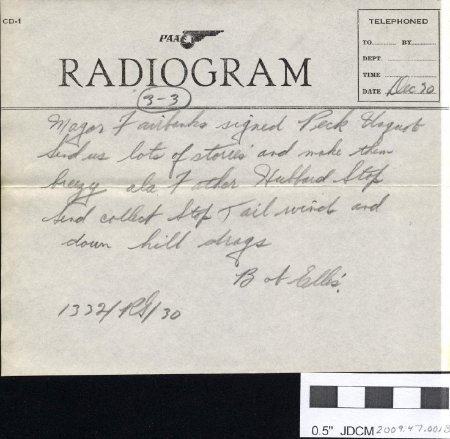 CD-1
PAA
RADIOGRAM
TELEPHONED
TO BY
DEPT.
TIME
DATE Dec 30
3-3
Magor Fairbanks signed Peck Unquote
Send us lots of stories and make them
breezy ala Father Hubbard Stop
Send collect Stop Tail winds and
down hill drags
Bob Ellis.
1332/RG/30
0.5" JDCM 2009.47.001B